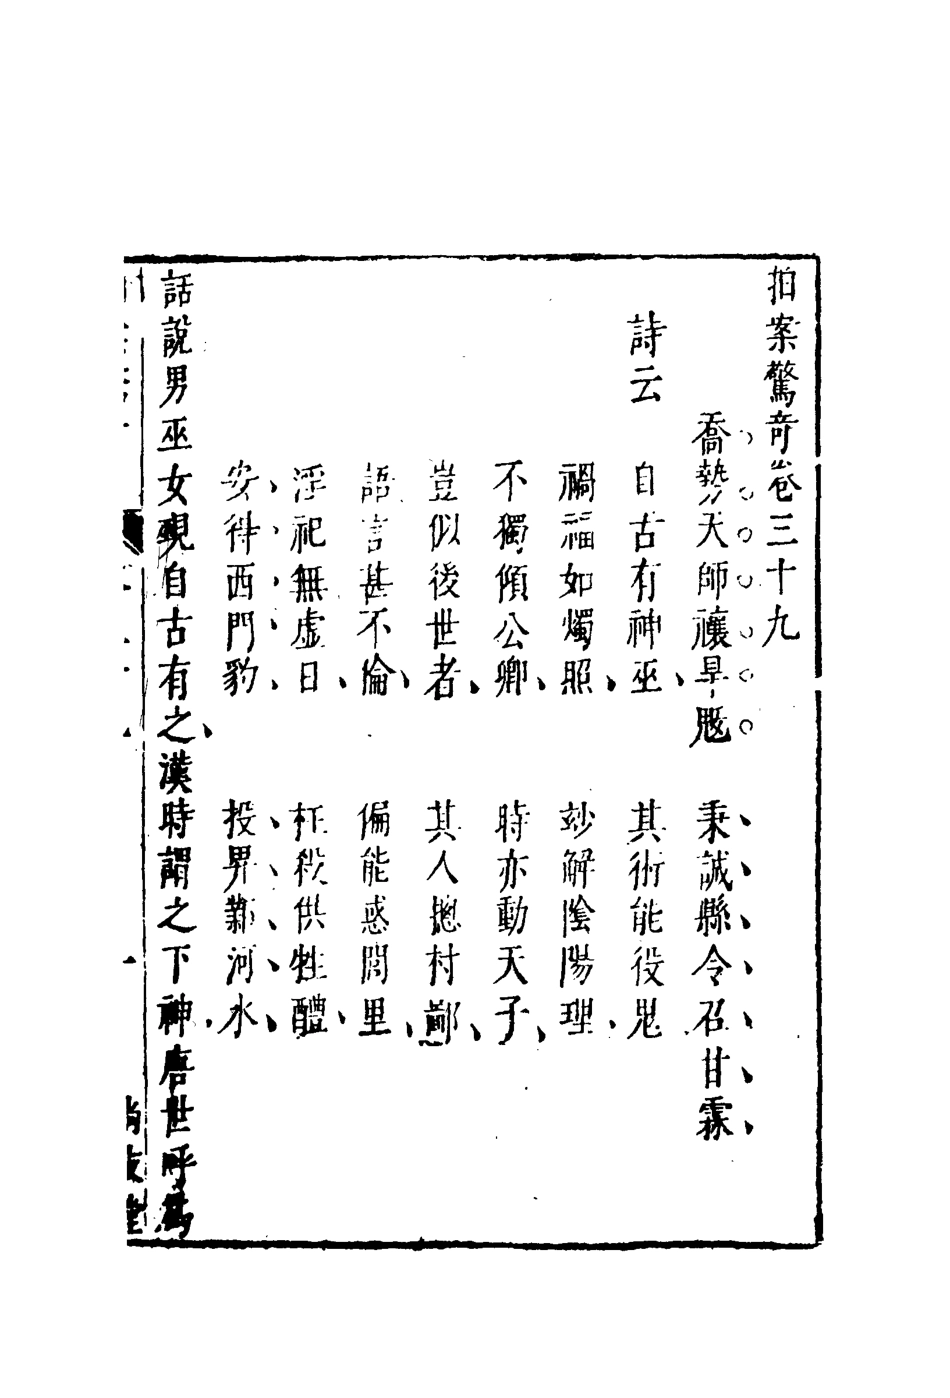 拍案驚奇卷三十九
喬勢天師禳旱魃　秉誠縣令召甘霖
詩云　自古有神巫、　其術能役鬼
禍福如燭照、　玅解陰陽理、
不獨傾公卿、　時亦動天子、
豈似後世者、　其人揔村鄙、
語言甚不倫、　偏能惑閭里、
淫祀無虛日、　枉殺供牲醴、
安得西門豹、　投畀鄴河水、
話說男巫女覡自古有之、漢時謂之下神、唐世呼爲
尚友堂